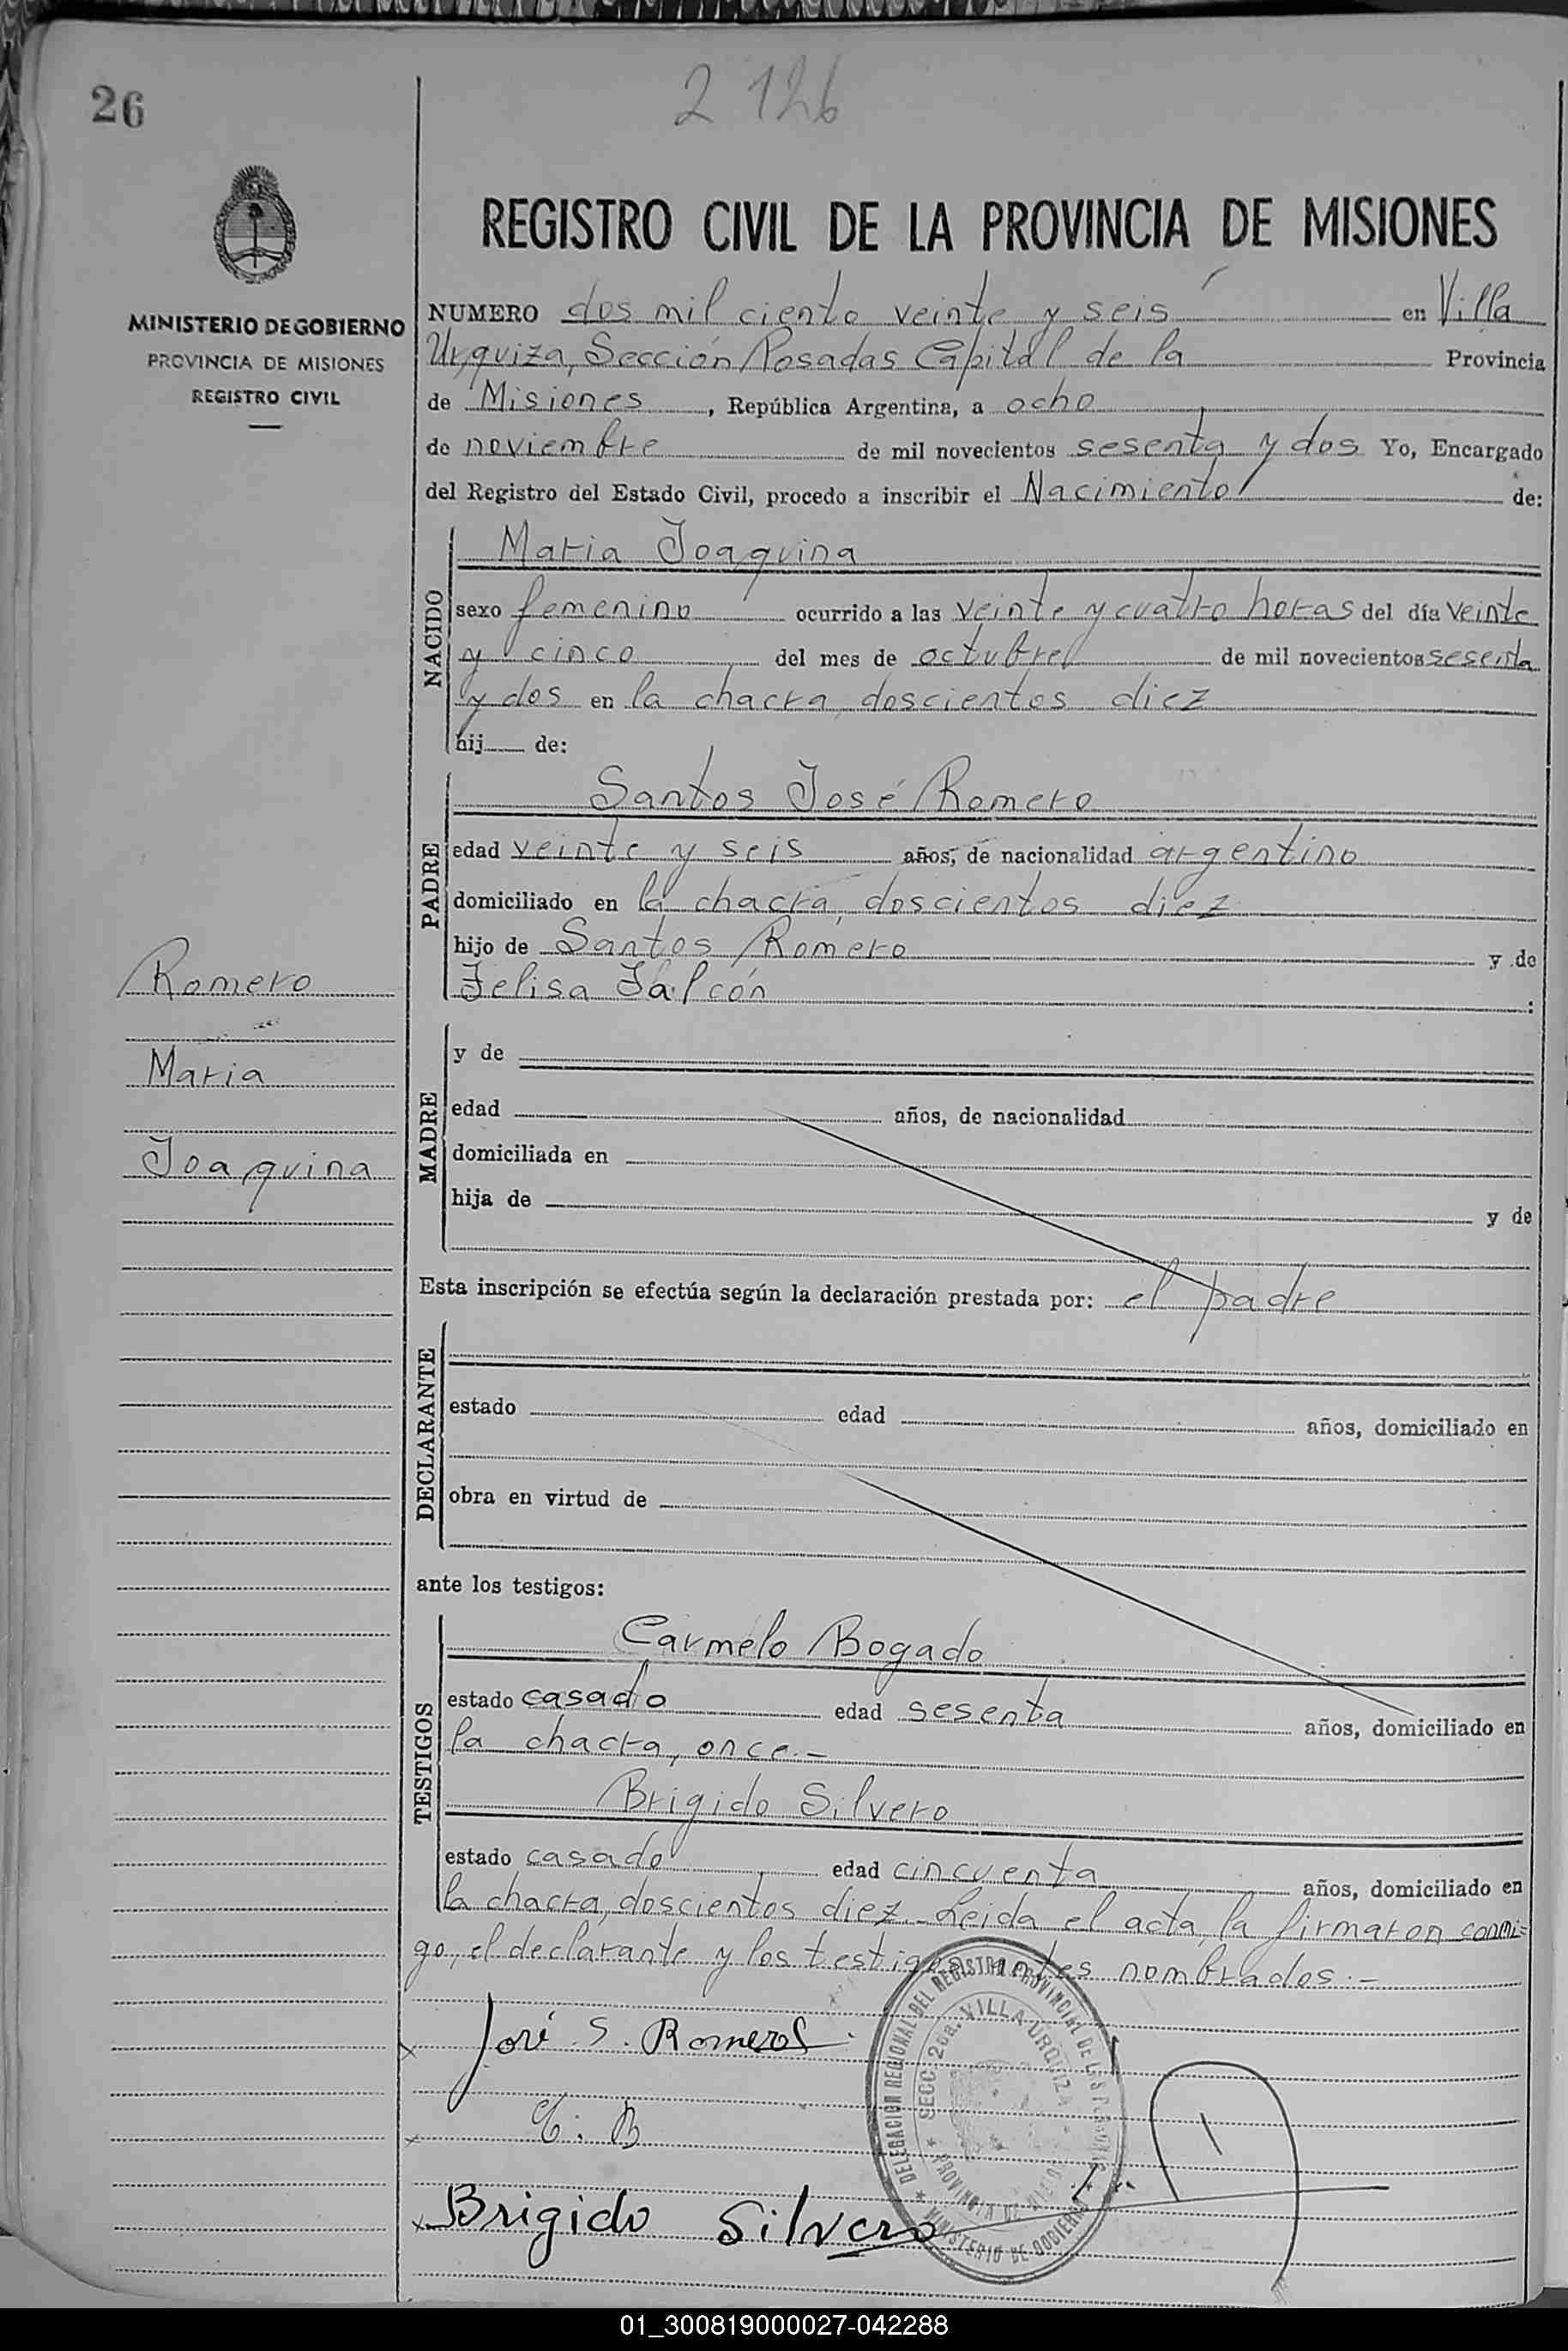 26
2126
MINISTERIO DE GOBIERNO
PROVINCIA DE MISIONES
REGISTRO CIVIL
REGISTRO CIVIL DE LA PROVINCIA DE MISIONES
NUMERO dos mil ciento veinte y seis en Villa
Urquiza, Sección Posadas Capital de la Provincia
de Misiones, República Argentina, a ocho
de noviembre de mil novecientos sesenta y dos Yo, Encargado
del Registro del Estado Civil, procedo a inscribir el Nacimiento de:
NACIDO
Maria Joaquina
sexo femenino ocurrido a las veinte y cuatro horas del día veinte
y cinco del mes de octubre de mil novecientos sesenta
y dos en la chacra, doscientos diez
hij de:
PADRE
Santos José Romero
edad veinte y seis años, de nacionalidad argentino
domiciliado en la chacra, doscientos diez
hijo de Santos Romero y de
Felisa Falcón :
Romero
Maria
Joaquina
MADRE
y de
edad años, de nacionalidad
domiciliada en
hija de y de
Esta inscripción se efectúa según la declaración prestada por: el padre
DECLARANTE
estado edad años, domiciliado en
obra en virtud de
ante los testigos:
TESTIGOS
Carmelo Bogado
estado casado edad sesenta años, domiciliado en
la chacra, once.-
Brigido Silvero
estado casado edad cincuenta años, domiciliado en
la chacra, doscientos diez.- Leida el acta, la firmaron conmi-
go, el declarante y los testigos antes nombrados.-
José S. Romero
C. B
Brigido Silvero
DELEGACION REGIONAL DEL REGISTRO PROVINCIAL DE LAS PERSONAS
SECC. 2da. VILLA URQUIZA
PROVINCIA DE MISIONES
MINISTERIO DE GOBIERNO
01_300819000027-042288